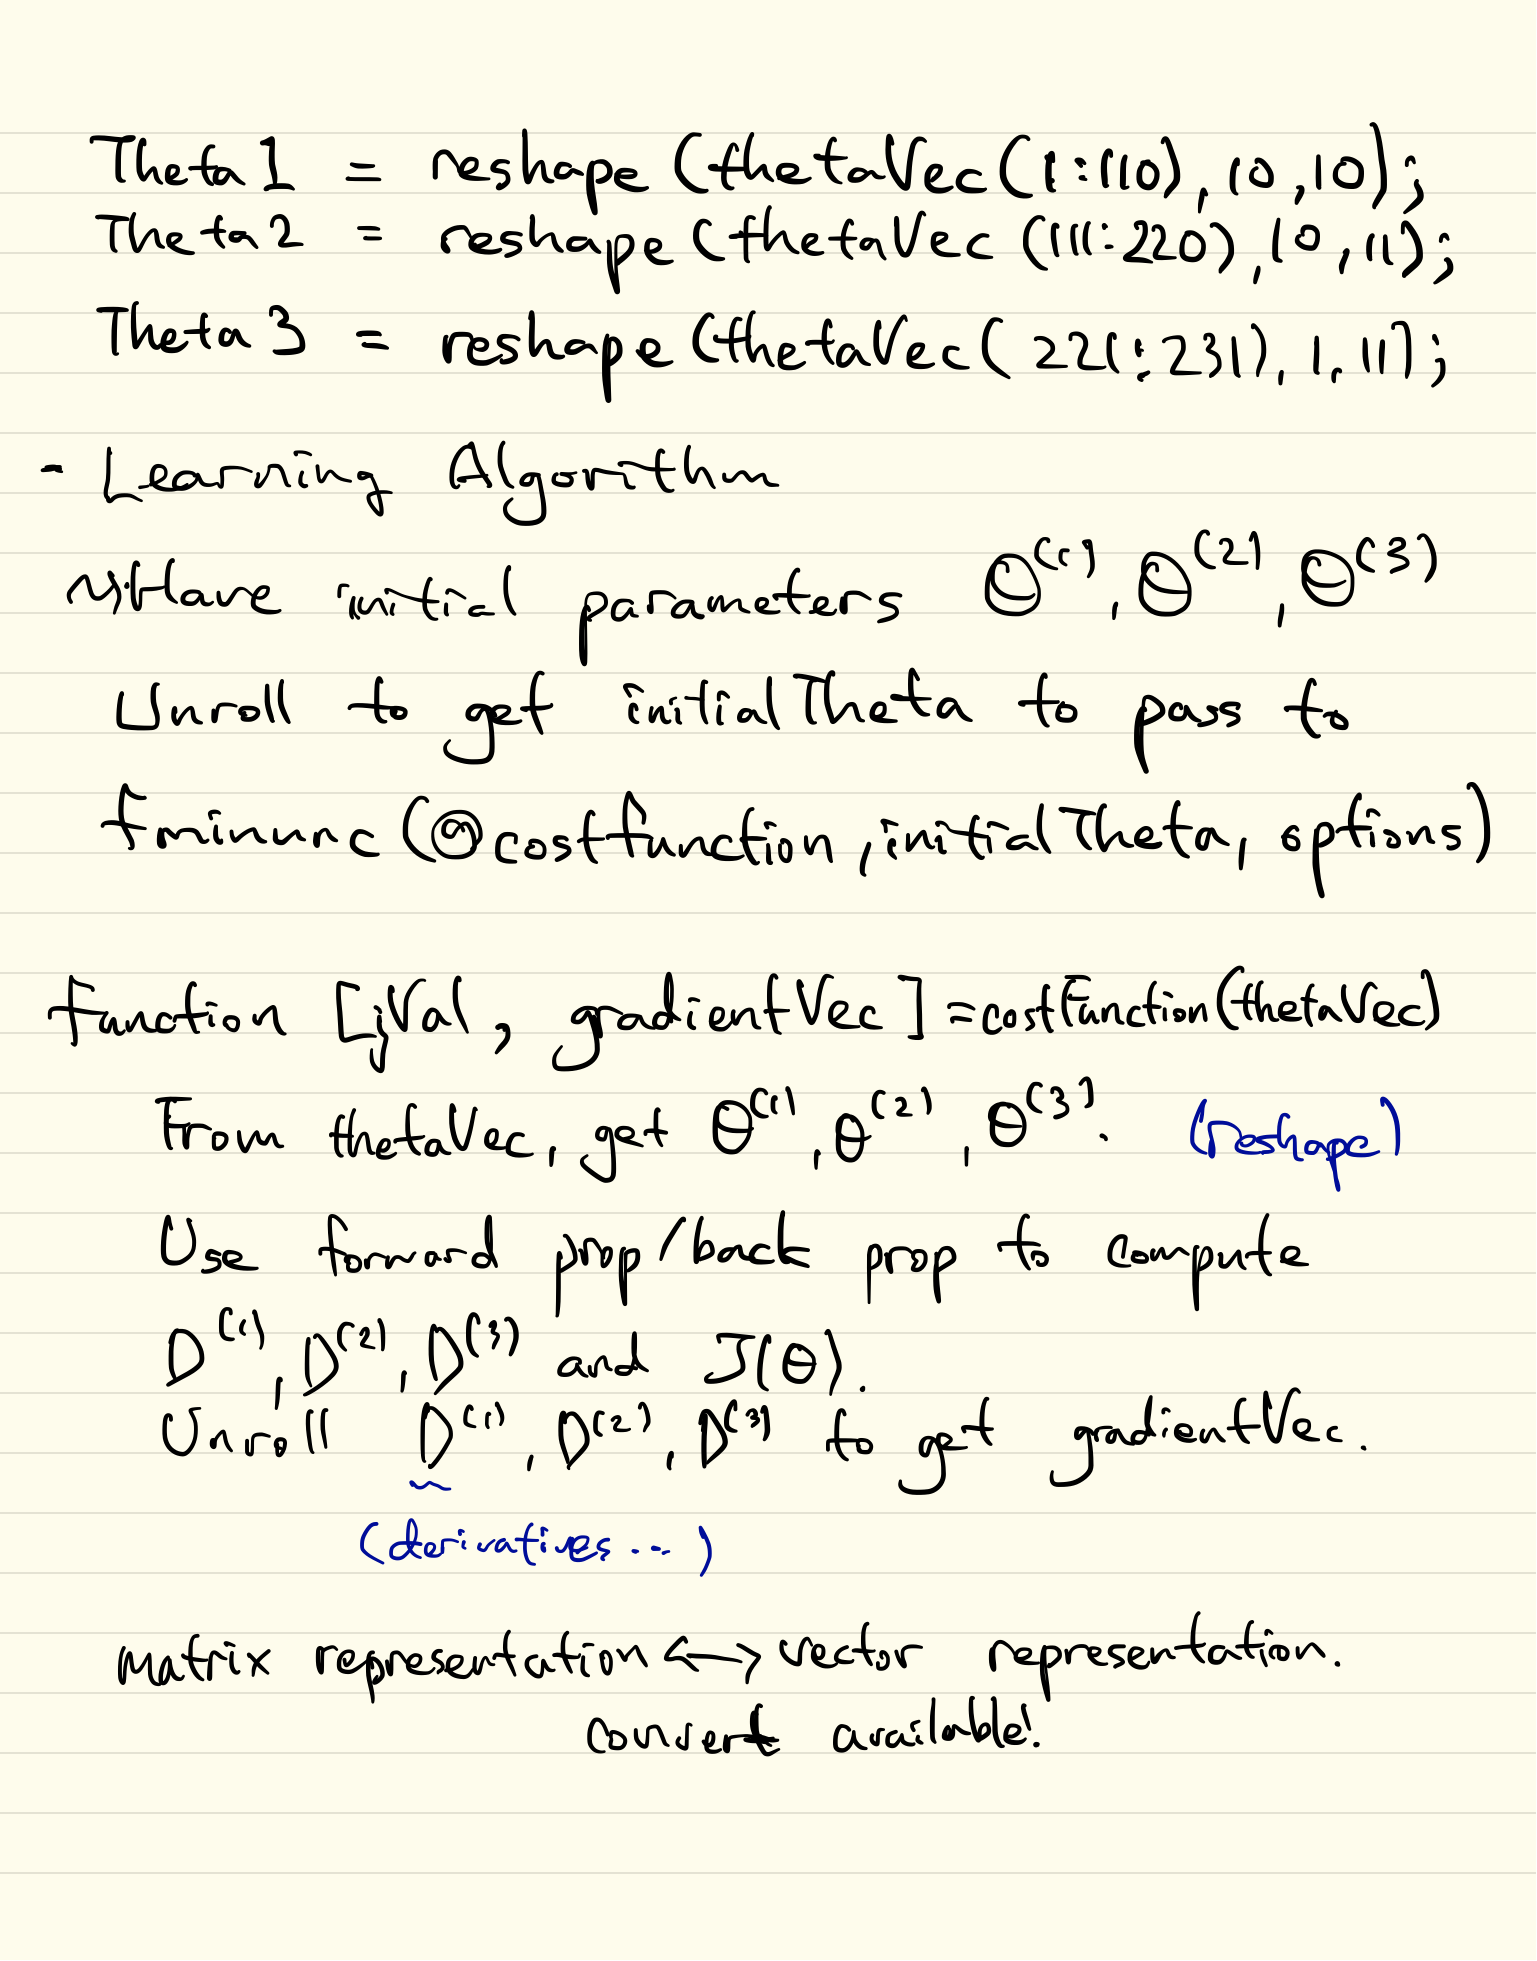 Theta1 = reshape(thetaVec(1:110), 10, 10);
Theta2 = reshape(thetaVec(111:220), 10, 11);
Theta3 = reshape(thetaVec(221:231), 1, 11);
- Learning Algorithm
Have initial parameters Θ^(1), Θ^(2), Θ^(3)
Unroll to get initialTheta to pass to
fminunc(@costfunction, initialTheta, options)
function [jVal, gradientVec] = costFunction(thetaVec)
From thetaVec, get Θ^(1), Θ^(2), Θ^(3). (reshape)
Use forward prop/back prop to compute
D^(1), D^(2), D^(3) and J(Θ).
Unroll D^(1), D^(2), D^(3) to get gradientVec.
(derivatives...)
matrix representation <-> vector representation.
convert available!